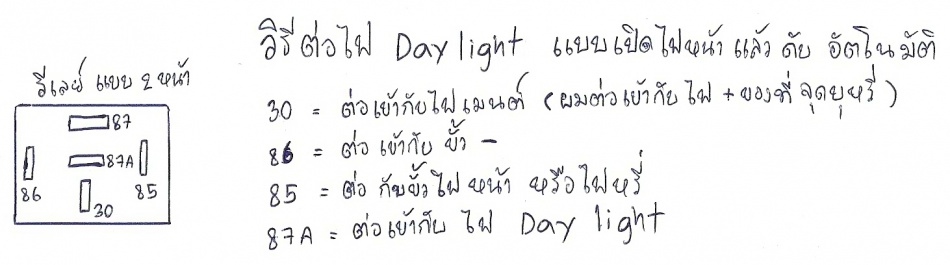 วิธีต่อไฟ Day light แบบเปิดไฟหน้าแล้วดับ อัตโนมัติ
รีเลย์ แบบ 2 หน้า
87
87A
86
85
30
30 = ต่อเข้ากับไฟเมนต์ (ผมต่อเข้ากับไฟ + ของที่จุดบุหรี่)
86 = ต่อเข้ากับ ขั้ว -
85 = ต่อ กับขั้วไฟหน้า หรือไฟหรี่
87A = ต่อเข้ากับ ไฟ Day light